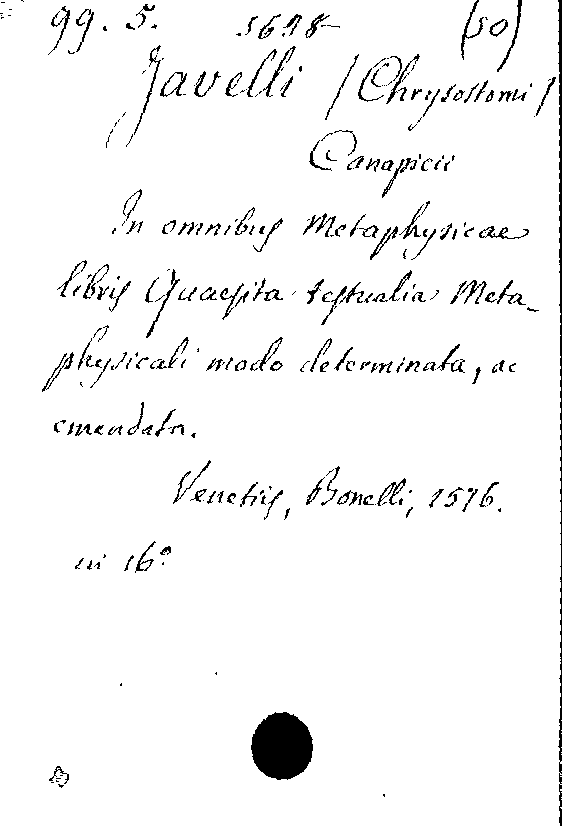 99. 5. 1698 (50)
Javelli (Chrysostomi)
Canapicii
In omnibus Metaphysicae
libris Quaesita testualia Meta-
physicali modo determinata, ac
emendata.
Venetiis, Bonelli, 1576.
in 16º